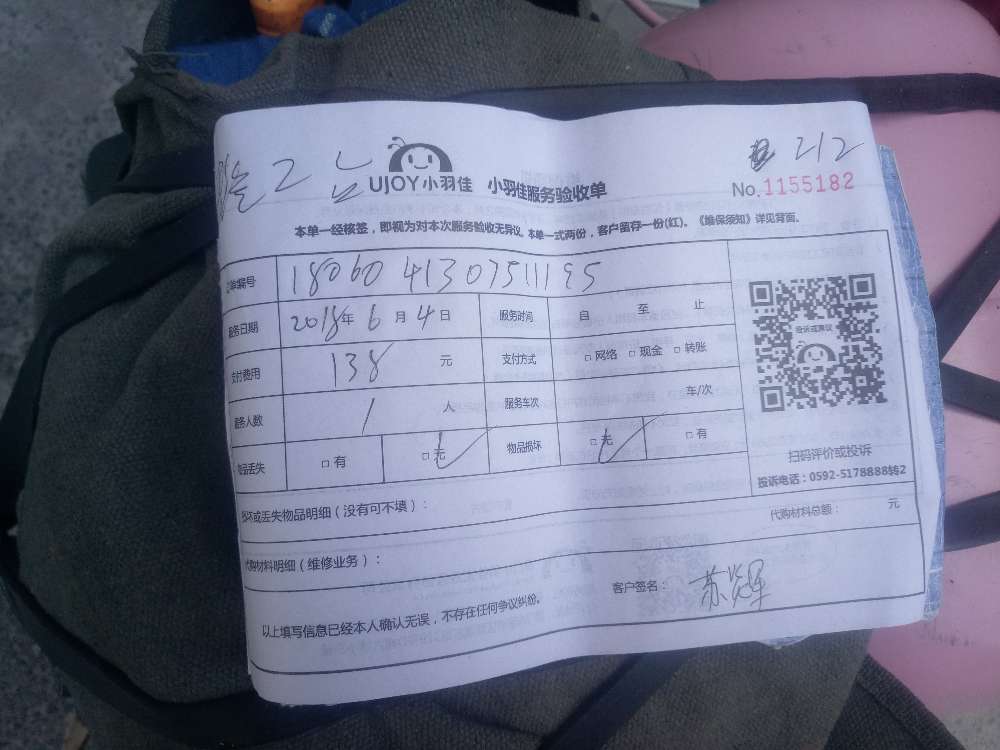 212
UJOY小羽佳 小羽佳服务验收单
No.1155182
本单一经核签，即视为对本次服务验收无异议。本单一式两份，客户留存一份(红)。《维保须知》详见背面。
订单编号
服务日期 2018年 6 月 4 日 服务时间 自 至 止
支付费用 138 元 支付方式 □ 网络 □ 现金 □ 转账
服务人数 1 人 服务车次 车/次
物品丢失 □ 有 □ 无 物品损坏 □ 无 □ 有
投诉或建议
扫码评价或投诉
投诉电话：0592-5178888转2
损坏或丢失物品明细（没有可不填）：
代购材料总额： 元
代购材料明细（维修业务）：
客户签名：
以上填写信息已经本人确认无误，不存在任何争议纠纷。